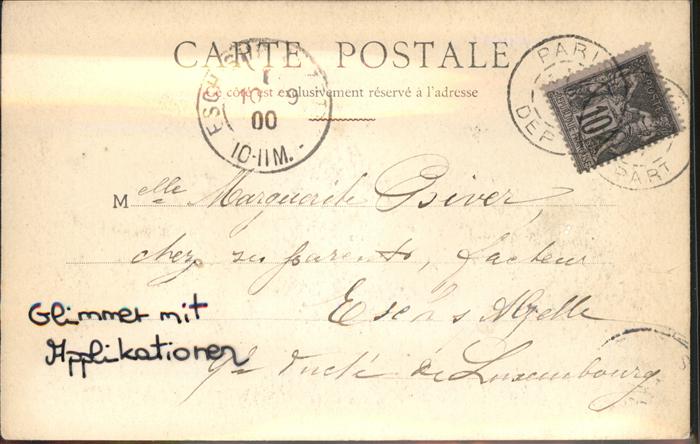 CARTE POSTALE
Ce côté est exclusivement réservé à l'adresse
ESCH
10 9
00
10-11M.
PARIS
DEPART
10
Melle Marguerite Biver,
chez ses parents, facteur
Esch s Alzette
Gd Duché de Luxembourg
Glimmer mit
Applikationen